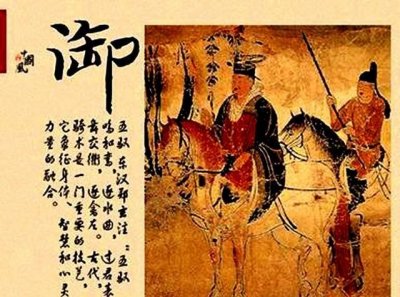 御
中國風
五驭 东汉郑玄注：五驭
鸣和鸾，逐水曲，过君表
舞交衢，逐禽左。古代，
骑术是一门重要的技艺，
它象征身体、智慧和心灵
力量的融合。